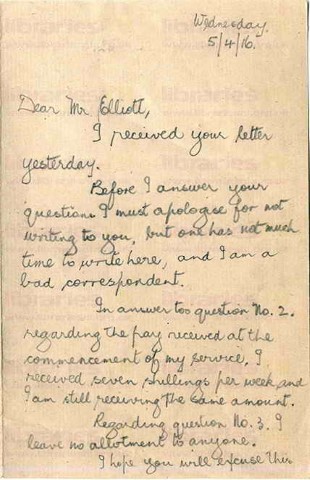 Wednesday.
5/4/16.
Dear Mr Elliott,
I received your letter
yesterday.
Before I answer your
question. I must apologise for not
writing to you, but one has not much
time to write here, and I am a
bad correspondent.
In answer too question No. 2.
regarding the pay received at the
commencement of my service, I
received seven shillings per week, and
I am still receiving the same amount.
Regarding question No. 3. I
leave no allotment to anyone.
I hope you will excuse this